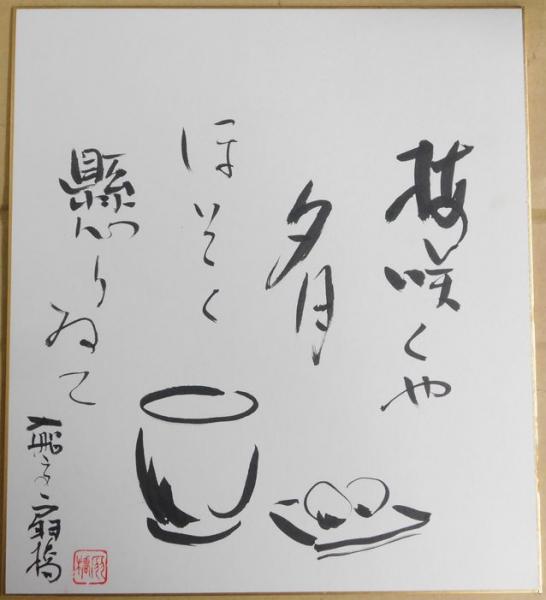 梅咲くや
夕月
ほそく
懸りゐて
扇橋